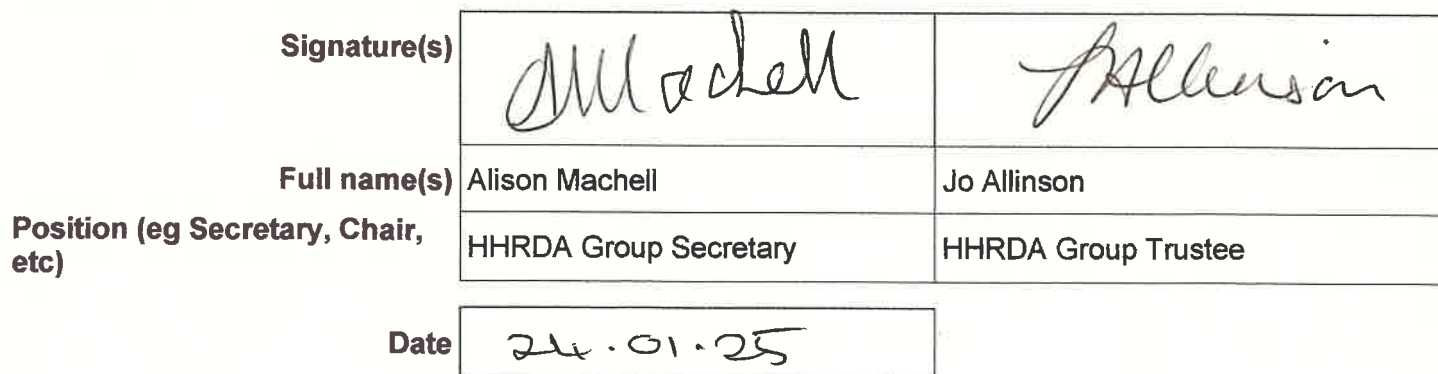 Signature(s) AMachell JAllinson
Full name(s) Alison Machell Jo Allinson
Position (eg Secretary, Chair, etc) HHRDA Group Secretary HHRDA Group Trustee
Date 24.01.25